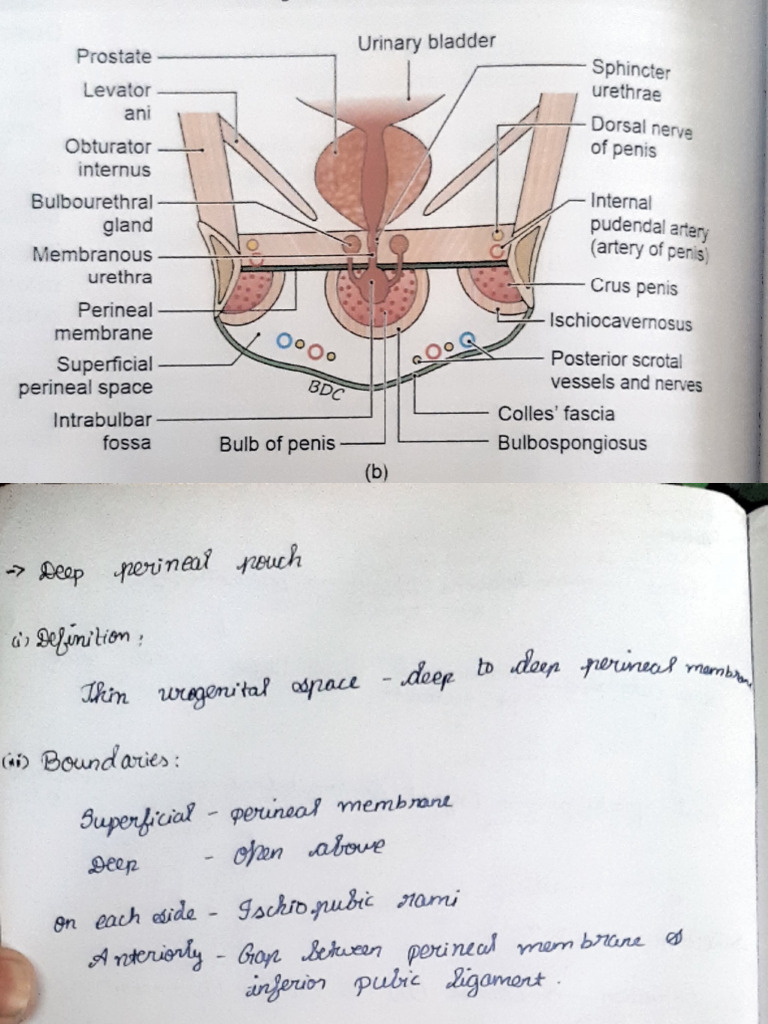 Prostate
Levator
ani
Obturator
internus
Bulbourethral
gland
Membranous
urethra
Perineal
membrane
Superficial
perineal space
Intrabulbar
fossa
Urinary bladder
Sphincter
urethrae
Dorsal nerve
of penis
Internal
pudendal artery
(artery of penis)
Crus penis
Ischiocavernosus
Posterior scrotal
vessels and nerves
Colles' fascia
Bulbospongiosus
Bulb of penis
BDC
(b)
→ Deep perineal pouch
(i) Definition:
Thin urogenital space - deep to deep perineal membran
(ii) Boundaries:
Superficial - perineal membrane
Deep - Open above
On each side - Ischiopubic rami
Anteriorly - Gap between perineal membrane &
inferior pubic ligament.